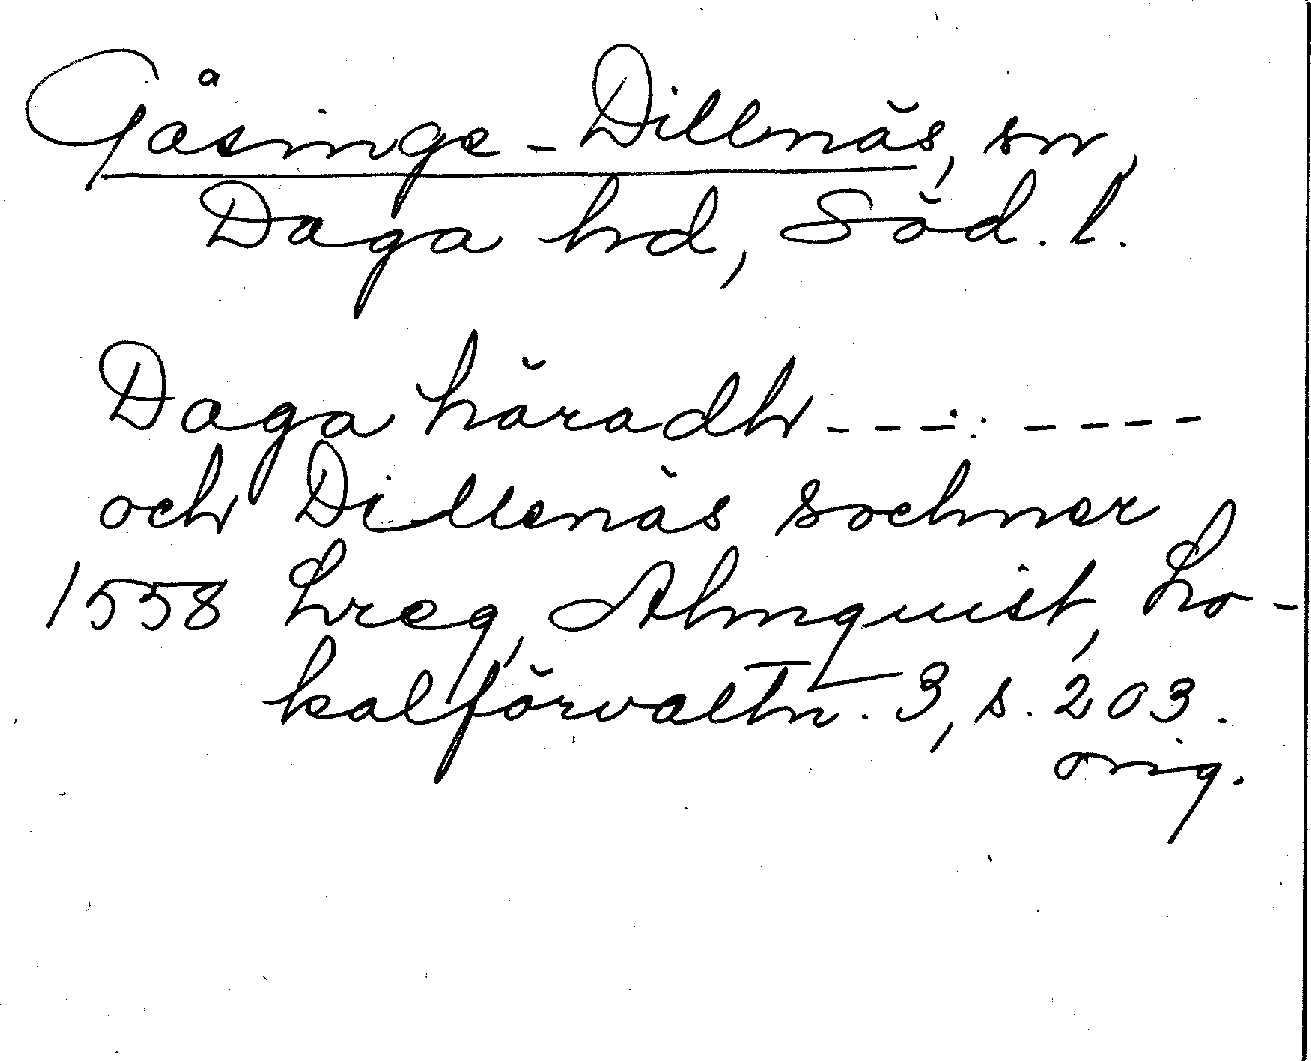 Gåsinge-Dillnäs, sn,
Daga hd, Söd. l.
Daga häradh ---:----
och Dillenäs sochner
1558 Lreg, Almquist, Lo-
kalförvaltn. 3, s. 203.
orig.